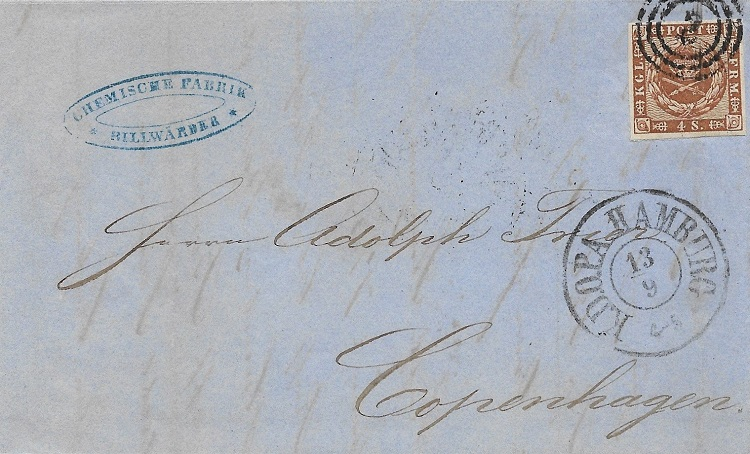 CHEMISCHE FABRIK
* BILLWÄRDER *
KGL POST FRM
4 S.
Herrn Adolph Trier
Copenhagen.
KDOPA HAMBURG
13
9